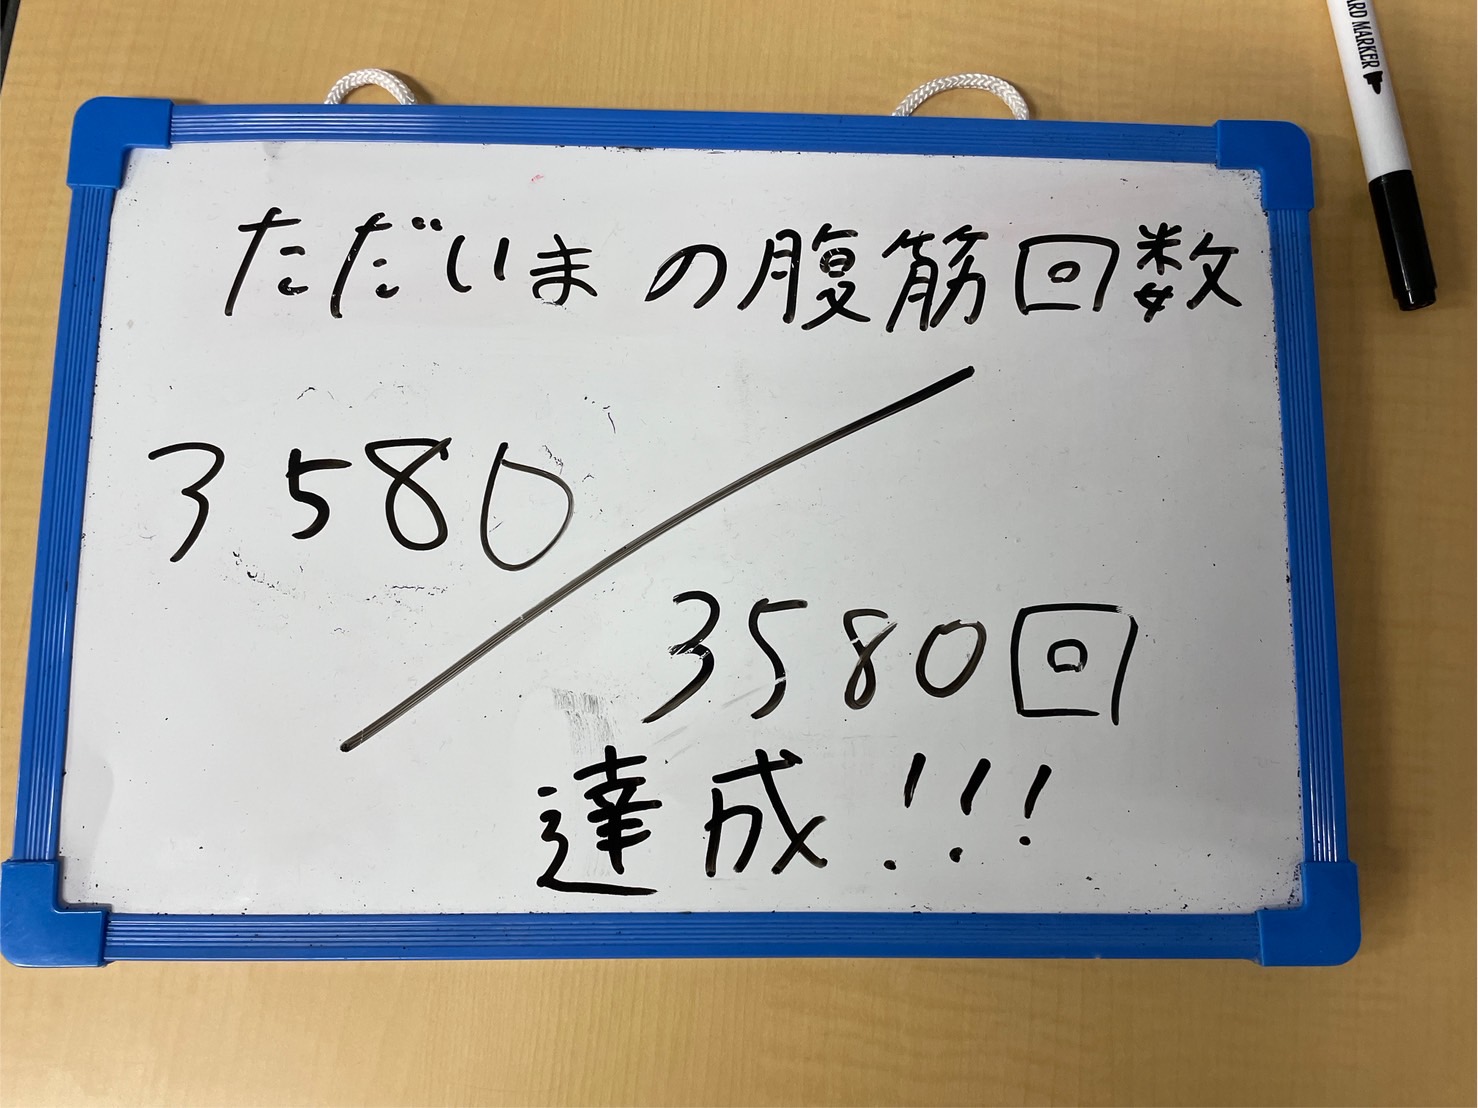 ただいまの腹筋回数
3580
3580回
達成!!!
ARD MARKER